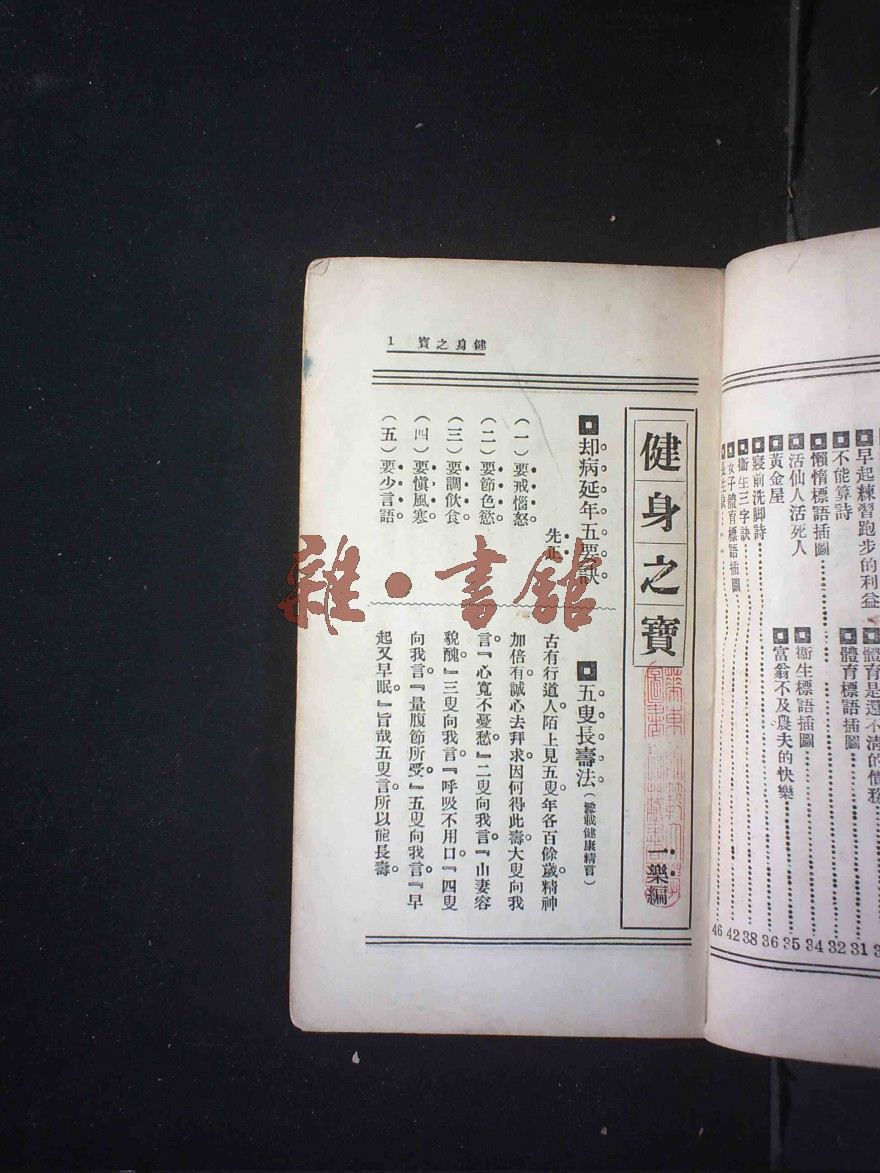 健身之寶 1
健身之寶
一樂編
却病延年五要訣
先正
(一)要戒惱怒。
(二)要節色慾。
(三)要調飲食
(四)要慎風寒
(五)要少言語。
五叟長壽法(叢載健康精言)
古有行道人陌上見五叟年各百餘歲。精神
加倍有誠心去拜求因何得此壽大叟向我
言。『心寬不憂愁』二叟向我言。『山妻容
貌醜。』三叟向我言。『呼吸不用口。』四叟
向我言『量腹節所受。』五叟向我言。『早
起又早眠。』旨哉五叟言。所以能長壽。
早起練習跑步的利益
體育是還不清的債務
不能算詩 31
體育標語插圖
懶惰標語插圖 32
活仙人活死人 34
衞生標語插圖
黃金屋 35
富翁不及農夫的快樂
寢前洗脚詩 36
衞生三字訣 38
女子體育標語插圖 42
46
雜·書館